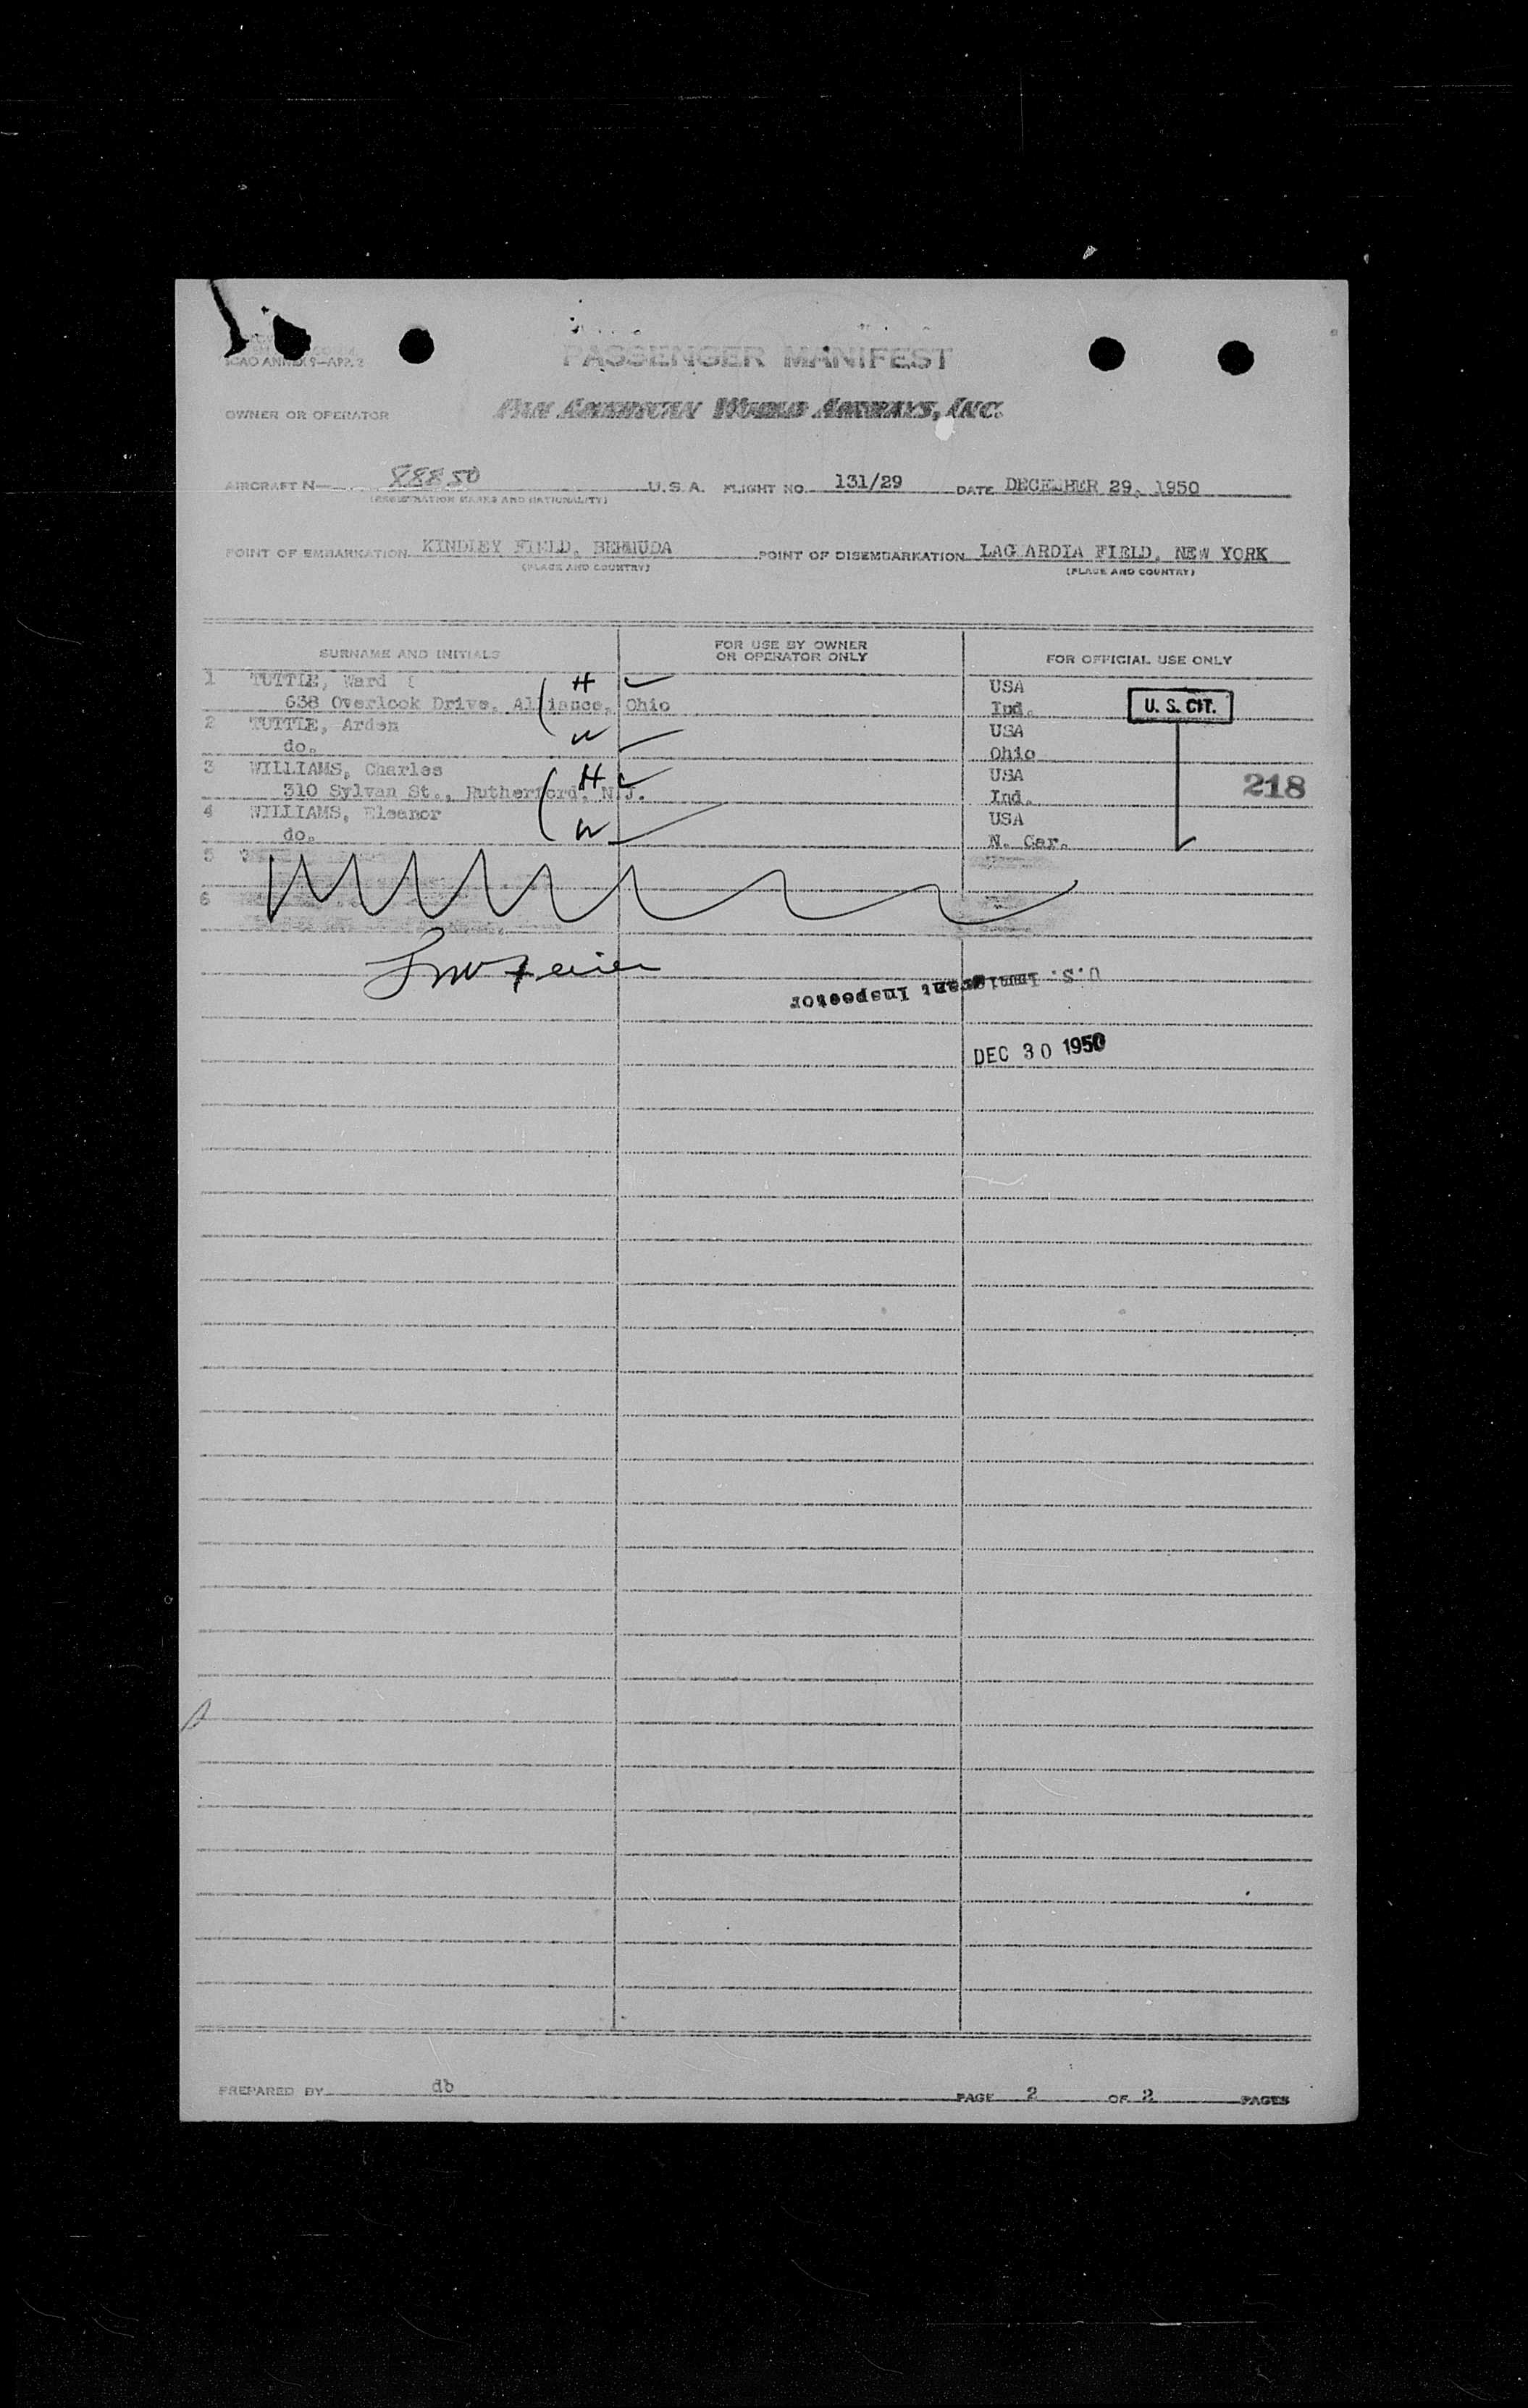 ICAO ANNEX 9—APP. 2
PASSENGER MANIFEST
OWNER OR OPERATOR PAN AMERICAN WORLD AIRWAYS, INC.
AIRCRAFT N— 88850 U.S.A. FLIGHT NO. 131/29 DATE DECEMBER 29, 1950
(REGISTRATION MARKS AND NATIONALITY)
POINT OF EMBARKATION KINDLEY FIELD, BERMUDA POINT OF DISEMBARKATION LAGUARDIA FIELD, NEW YORK
(PLACE AND COUNTRY) (PLACE AND COUNTRY)
SURNAME AND INITIALS FOR USE BY OWNER OR OPERATOR ONLY FOR OFFICIAL USE ONLY
1 TUTTLE, Ward H USA
638 Overlook Drive, Alliance, Ohio Ind. U. S. CIT.
2 TUTTLE, Arden USA
do. W Ohio
3 WILLIAMS, Charles H USA
310 Sylvan St., Rutherford, N.J. Ind. 218
4 WILLIAMS, Eleanor USA
do. W N. Car.
5
6
U.S. Immigrant Inspector
DEC 30 1950
PREPARED BY db PAGE 2 OF 2 PAGES